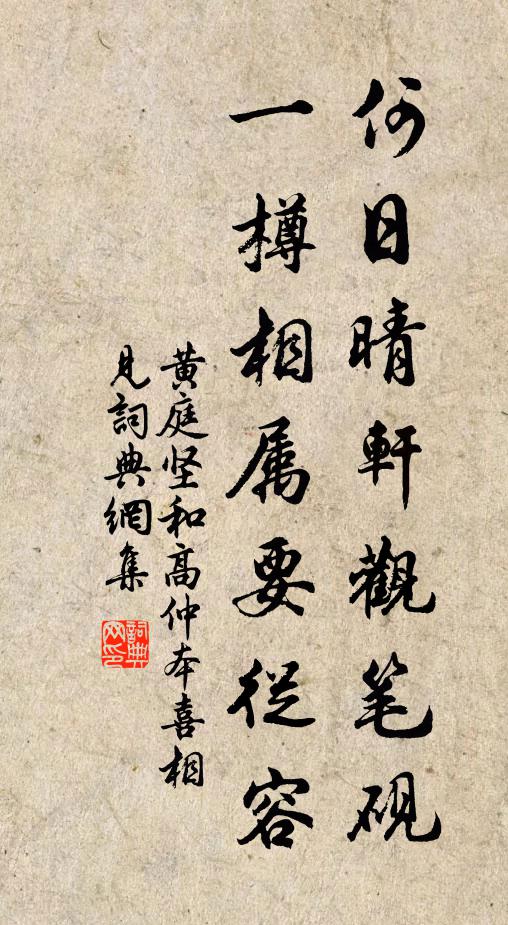 何日晴軒觀笔硯
一樽相属要從容
黄庭坚和高仲本喜相
見詞典網集
詞典
网印